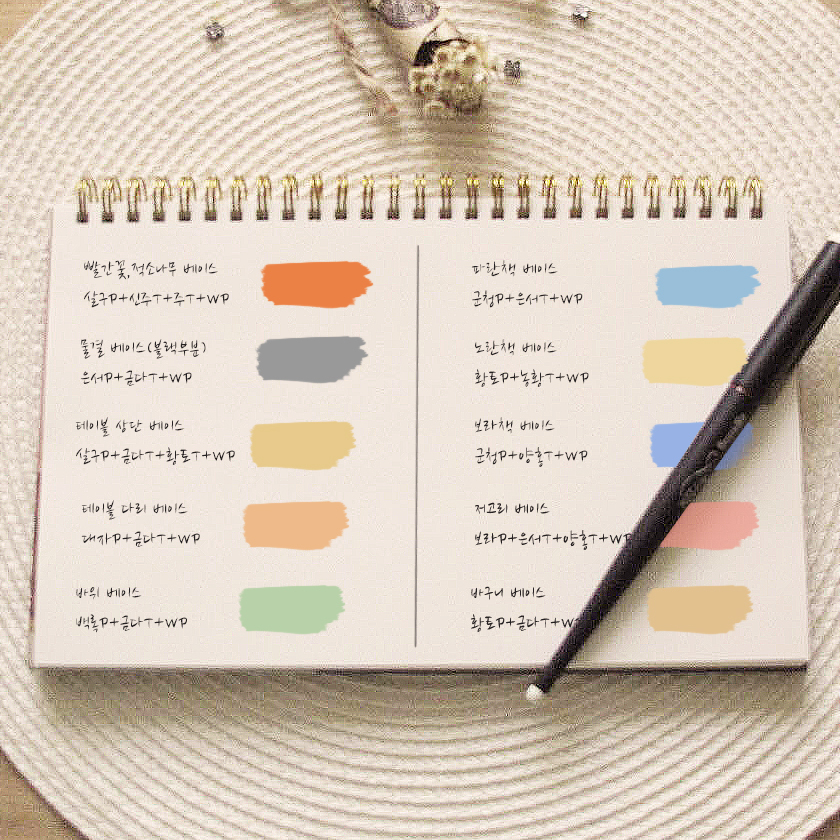 빨간꽃,적소나무 베이스
살구P+신주T+주T+WP
물결 베이스(블랙부분)
은서P+금다T+WP
테이블 상단 베이스
살구P+금다T+황토T+WP
테이블 다리 베이스
대자P+금다T+WP
바위 베이스
백록P+금다T+WP
파란책 베이스
군청P+은서T+WP
노란책 베이스
황토P+농황T+WP
보라책 베이스
군청P+양홍T+WP
저고리 베이스
보라P+은서T+양홍T+WP
바구니 베이스
황토P+금다T+WP